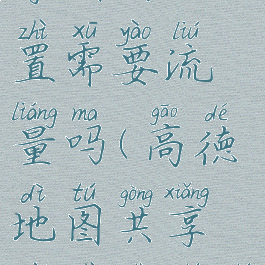 zhì xū yào liú
置需要流
liáng ma gāo dé
量吗(高德
dì tú gòng xiǎng
地图共享